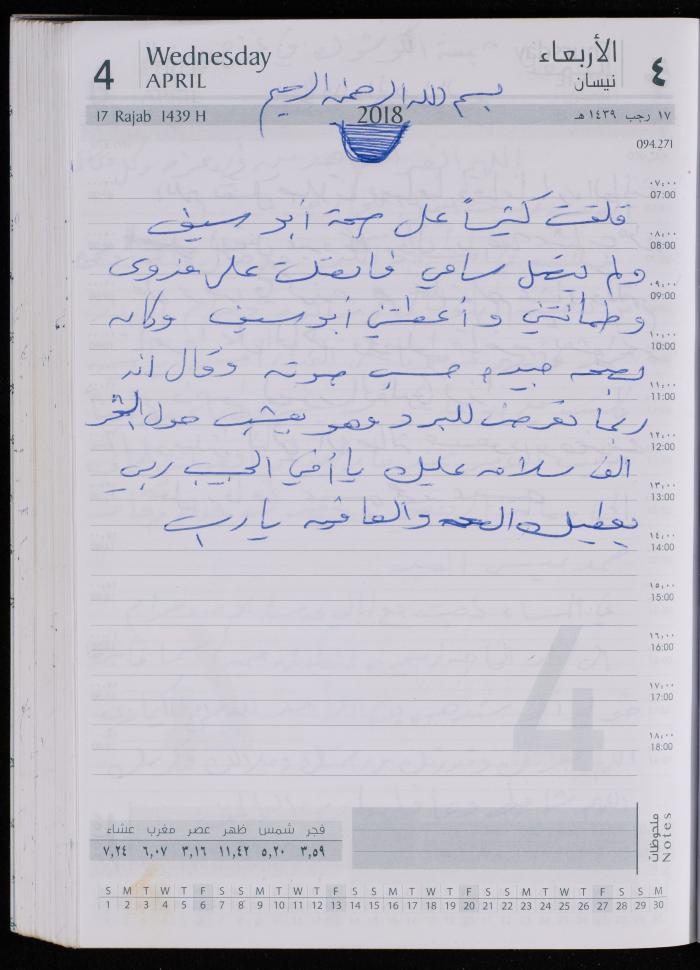 4
Wednesday
APRIL
الأربعاء
نيسان
٤
بسم الله الرحمن الرحيم
17 Rajab 1439 H
2018
١٧ رجب ١٤٣٩ هـ
094.271
٠٧:٠٠
07:00
قلقت كثيراً على صحة أبو سيف
٠٨:٠٠
08:00
ولم يتصل سامي فاتصلت على فدوى
٠٩:٠٠
09:00
وطمأنتني وأعطتني أبو سيف وكان
١٠:٠٠
10:00
بصحه جيده حسب صوته وقال انه
١١:٠٠
11:00
ربما تعرض للبرد وهو يعشب حول الشجر
١٢:٠٠
12:00
الف سلامه عليك يا أخي الحبيب ربي
١٣:٠٠
13:00
يعطيك الصحه والعافيه يا رب
١٤:٠٠
14:00
١٥:٠٠
15:00
١٦:٠٠
16:00
١٧:٠٠
17:00
١٨:٠٠
18:00
4
فجر شمس ظهر عصر مغرب عشاء
٣,٥٩ ٥,٢٠ ١١,٤٢ ٣,١٦ ٦,٠٧ ٧,٢٤
ملحوظات
Notes
S M T W T F S S M T W T F S S M T W T F S S M T W T F S S M
1 2 3 4 5 6 7 8 9 10 11 12 13 14 15 16 17 18 19 20 21 22 23 24 25 26 27 28 29 30